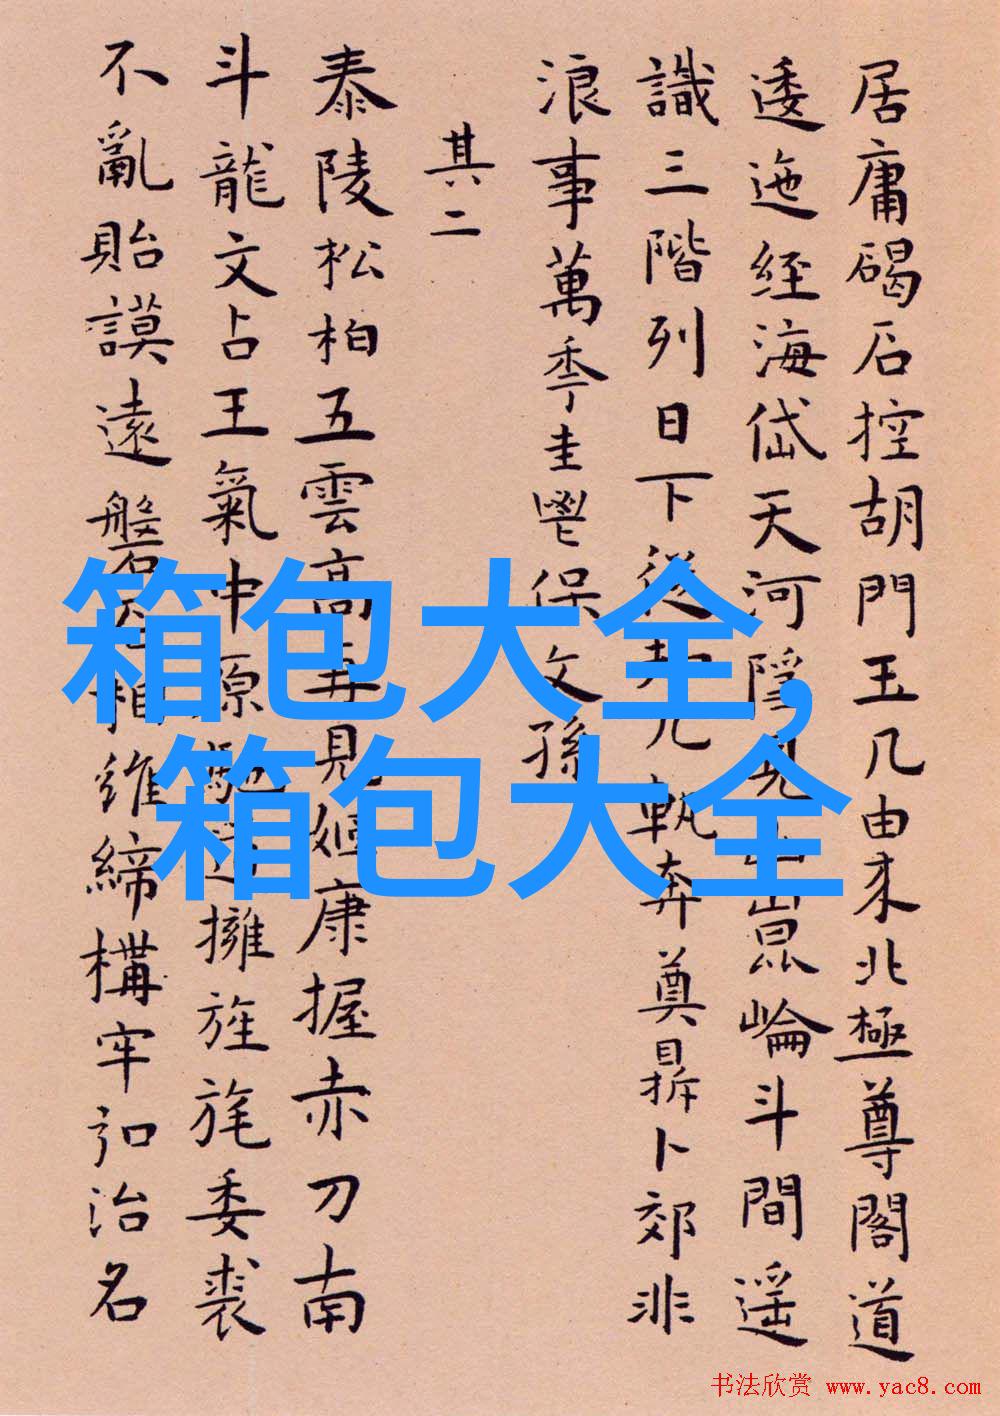 居庸碣石控胡門玉几由来北極尊閣道
逶迤經海岱天河隱見崑崙斗間遥
識三階列日下從九軌奔奠鼎卜郊非
浪事萬季圭鬯保文孫
其二
泰陵松柏五雲高再見姬康握赤刀南
斗龍文占王氣中原擁旌旄委裘
不亂貽謨遠磐石相維締構牢治名
箱包大全,
箱包大全
书法欣赏 www.yac8.com